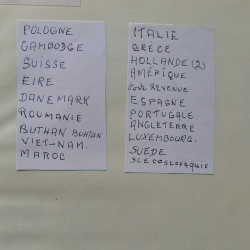 POLOGNE
CAMBODGE
SUISSE
EIRE
DANEMARK
ROUMANIE
BUTHAN BUHTAN
VIET-NAM.
MAROC
ITALIE
GRECE
HOLLANDE (2)
AMÉRIQUE
REVENUE
ESPAGNE
PORTUGALE
ANGLETERRE
LUXEMBOURG.
SUEDE